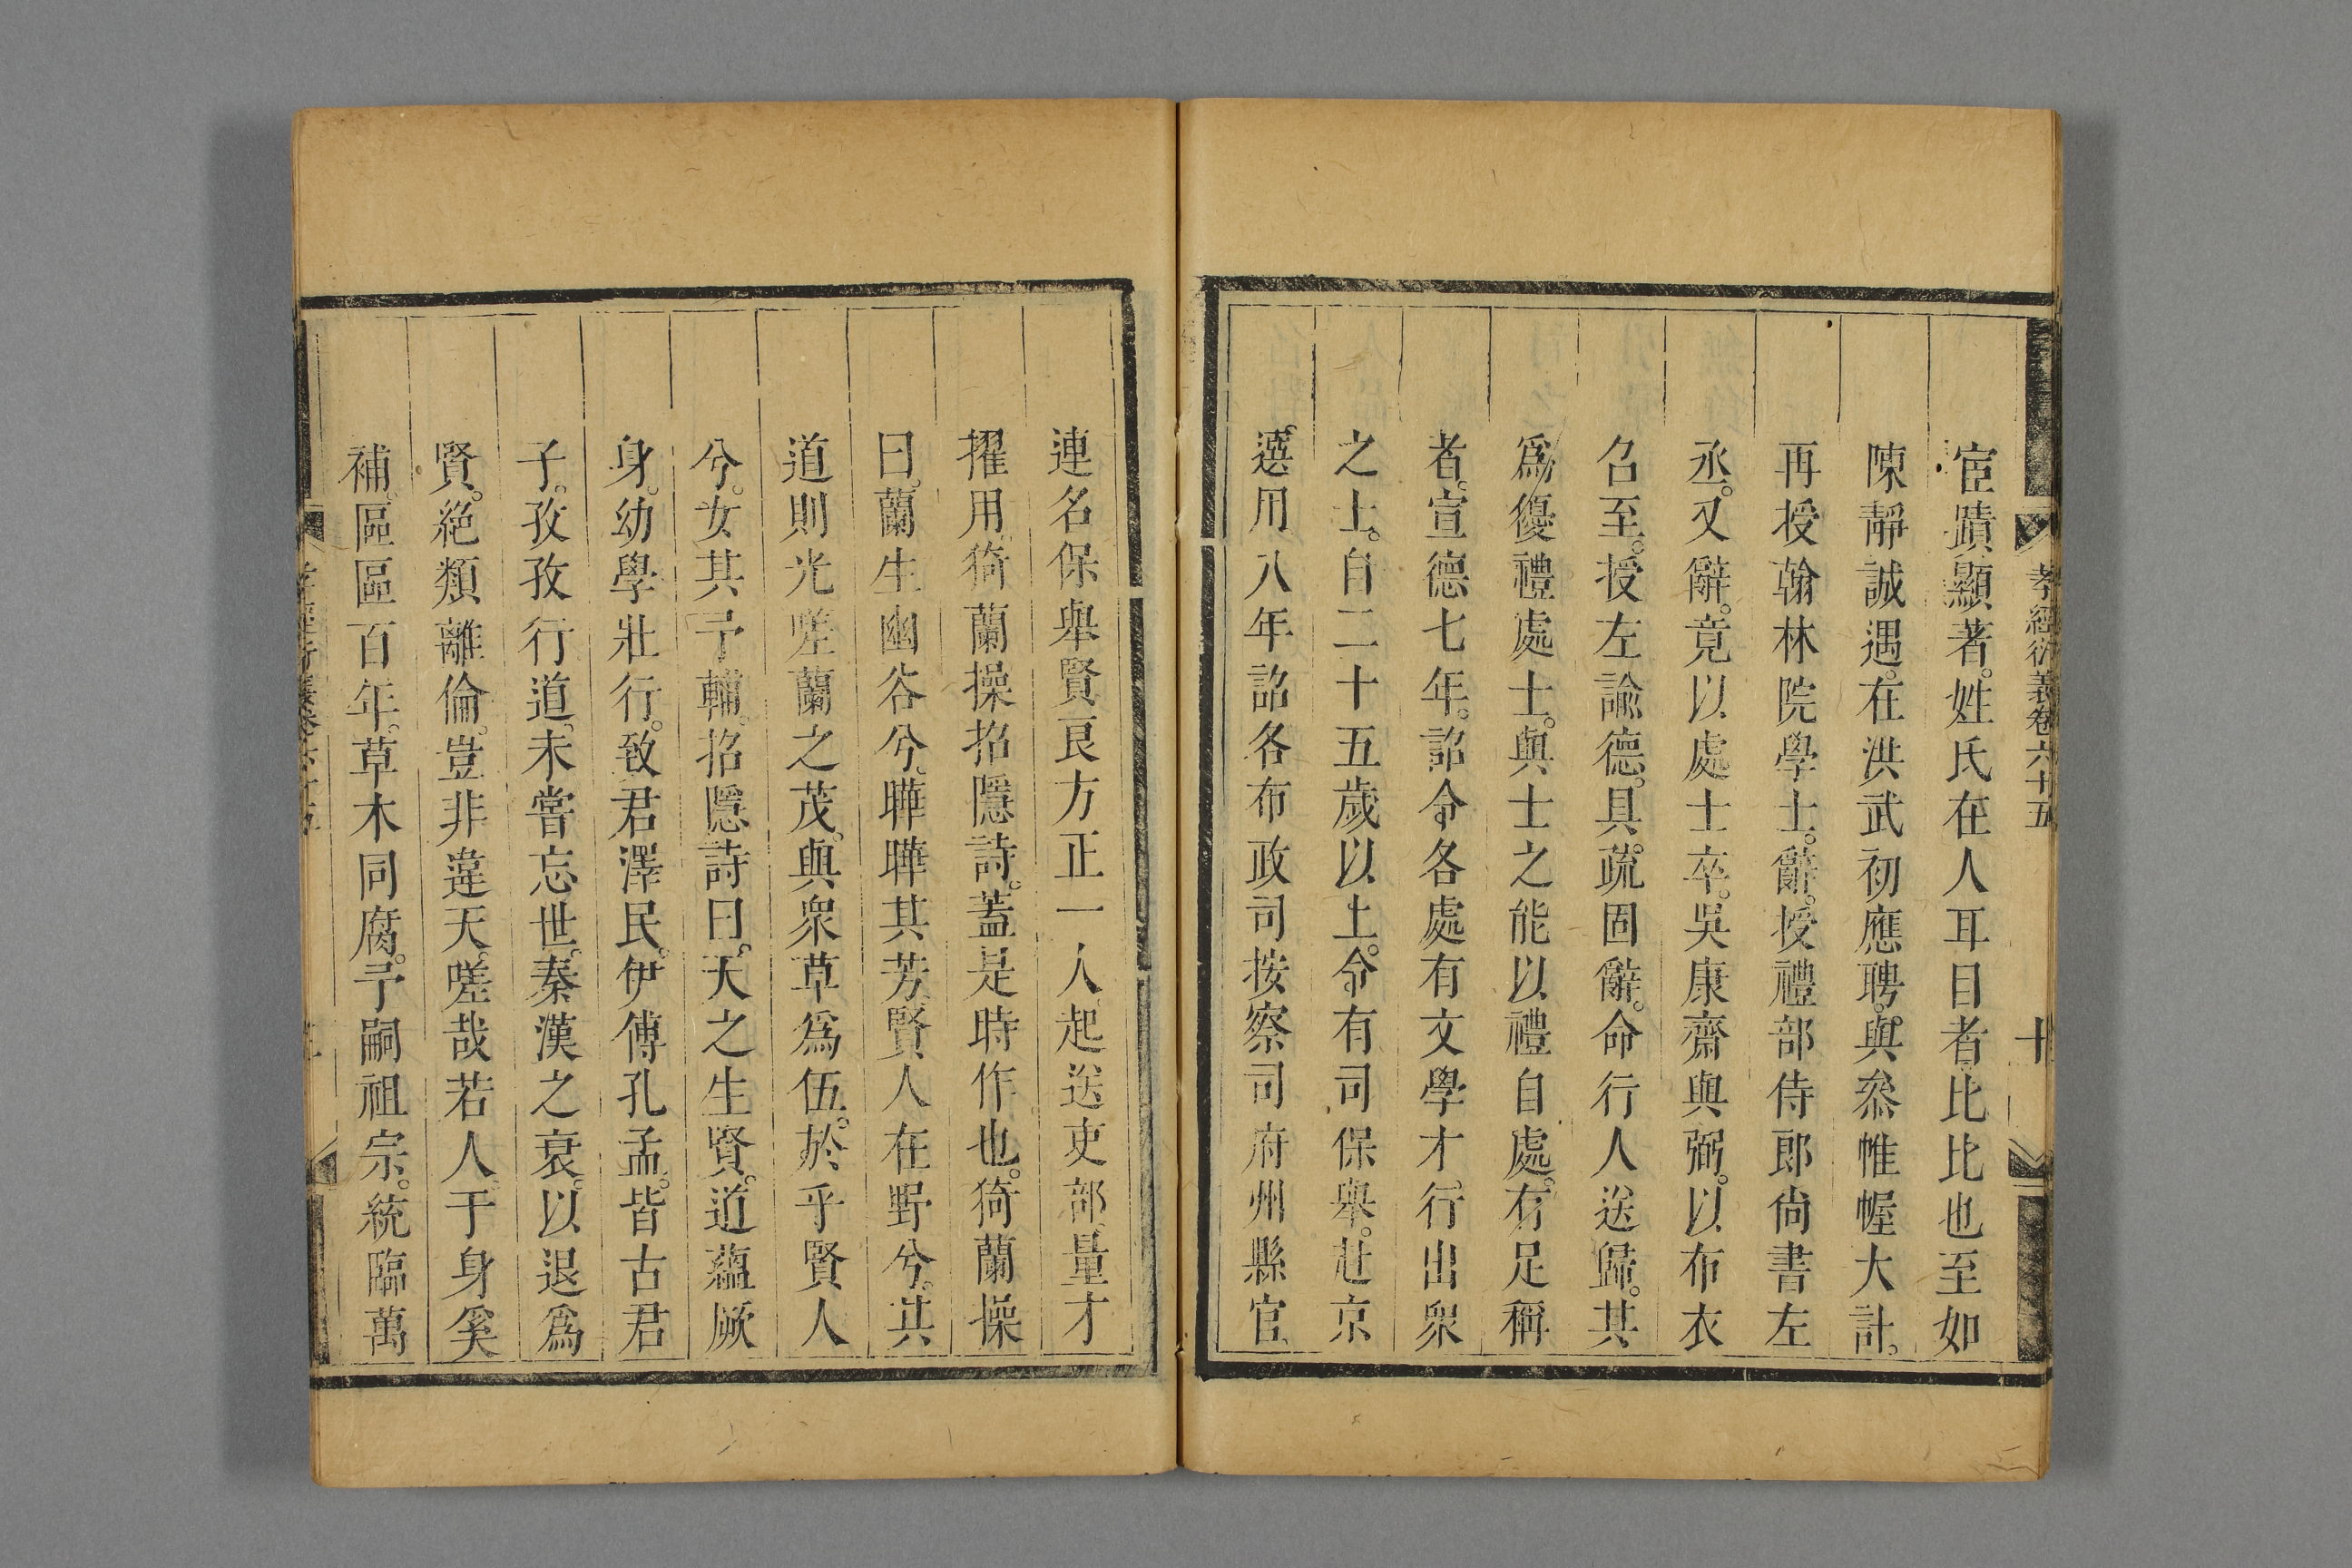 孝經衍義卷六十五
十
宦蹟顯著。姓氏在人耳目者。比比也至如
陳靜誠遇。在洪武初應聘。與叅帷幄大計。
再授翰林院學士。辭。授禮部侍郎尙書左
丞。又辭。竟以處士卒。吳康齋與弼。以布衣
召至。授左諭德。具疏固辭。命行人送歸。其
爲優禮處士。與士之能以禮自處。有足稱
者。宣德七年。詔令各處有文學才行出衆
之士。自二十五歲以上。令有司保舉。赴京
選用。八年詔各布政司按察司府州縣官
連名保舉賢良方正一人起送吏部。量才
擢用。猗蘭操招隱詩。蓋是時作也。猗蘭操
曰。蘭生幽谷兮。曄曄其芳。賢人在野兮。其
道則光。嗟蘭之茂。與衆草爲伍。於乎賢人
兮。女其予輔。招隱詩曰。天之生賢。道蘊厥
身。幼學壯行。致君澤民。伊傅孔孟。皆古君
子。孜孜行道。未嘗忘世。秦漢之衰。以退爲
賢。絕類離倫。豈非違天。嗟哉若人。于身奚
補。區區百年。草木同腐。予嗣祖宗。統臨萬
孝經衍義卷六十五